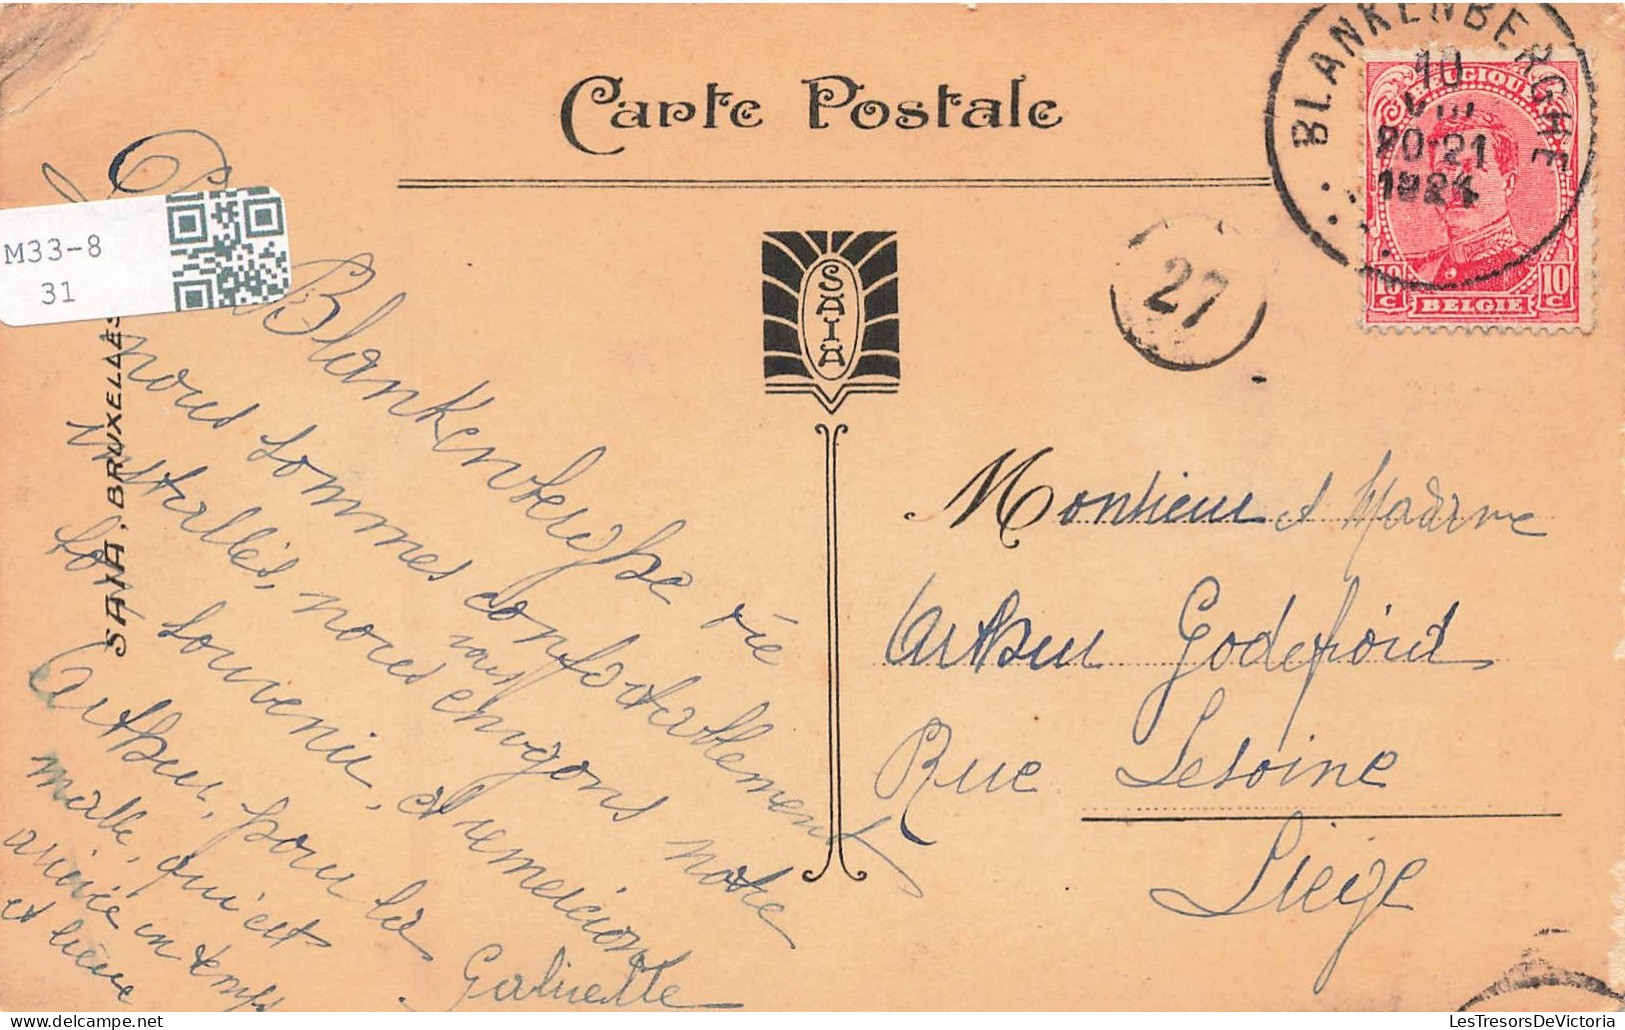 Carte Postale
BLANKENBERGHE
10
VIII
20-21
1924
BELGIQUE
10 C
10 C
BELGIE
27
SAIA
M33-8
31
SAIA, BRUXELLES
Blankenberghe
nous sommes confortablement
installés, nous vous envoyons notre
bon souvenir, et remercions
Arthur, pour la
malle, qui est
arrivée en temps
et lieue
Gabrielle
Monsieur et Madame
Arthur Godefroid
Rue Lesoine
Liége
LesTresorsDeVictoria
www.delcampe.net